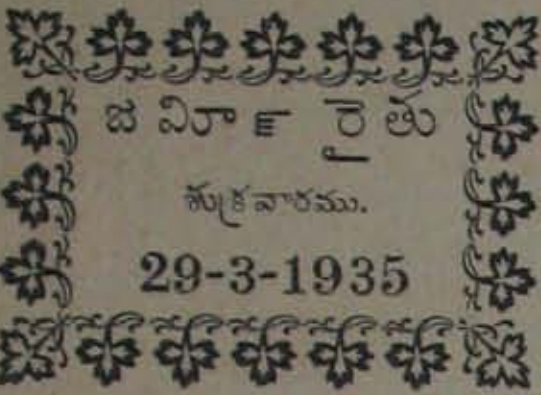 జమీన్ రైతు
శుక్రవారము.
29-3-1935